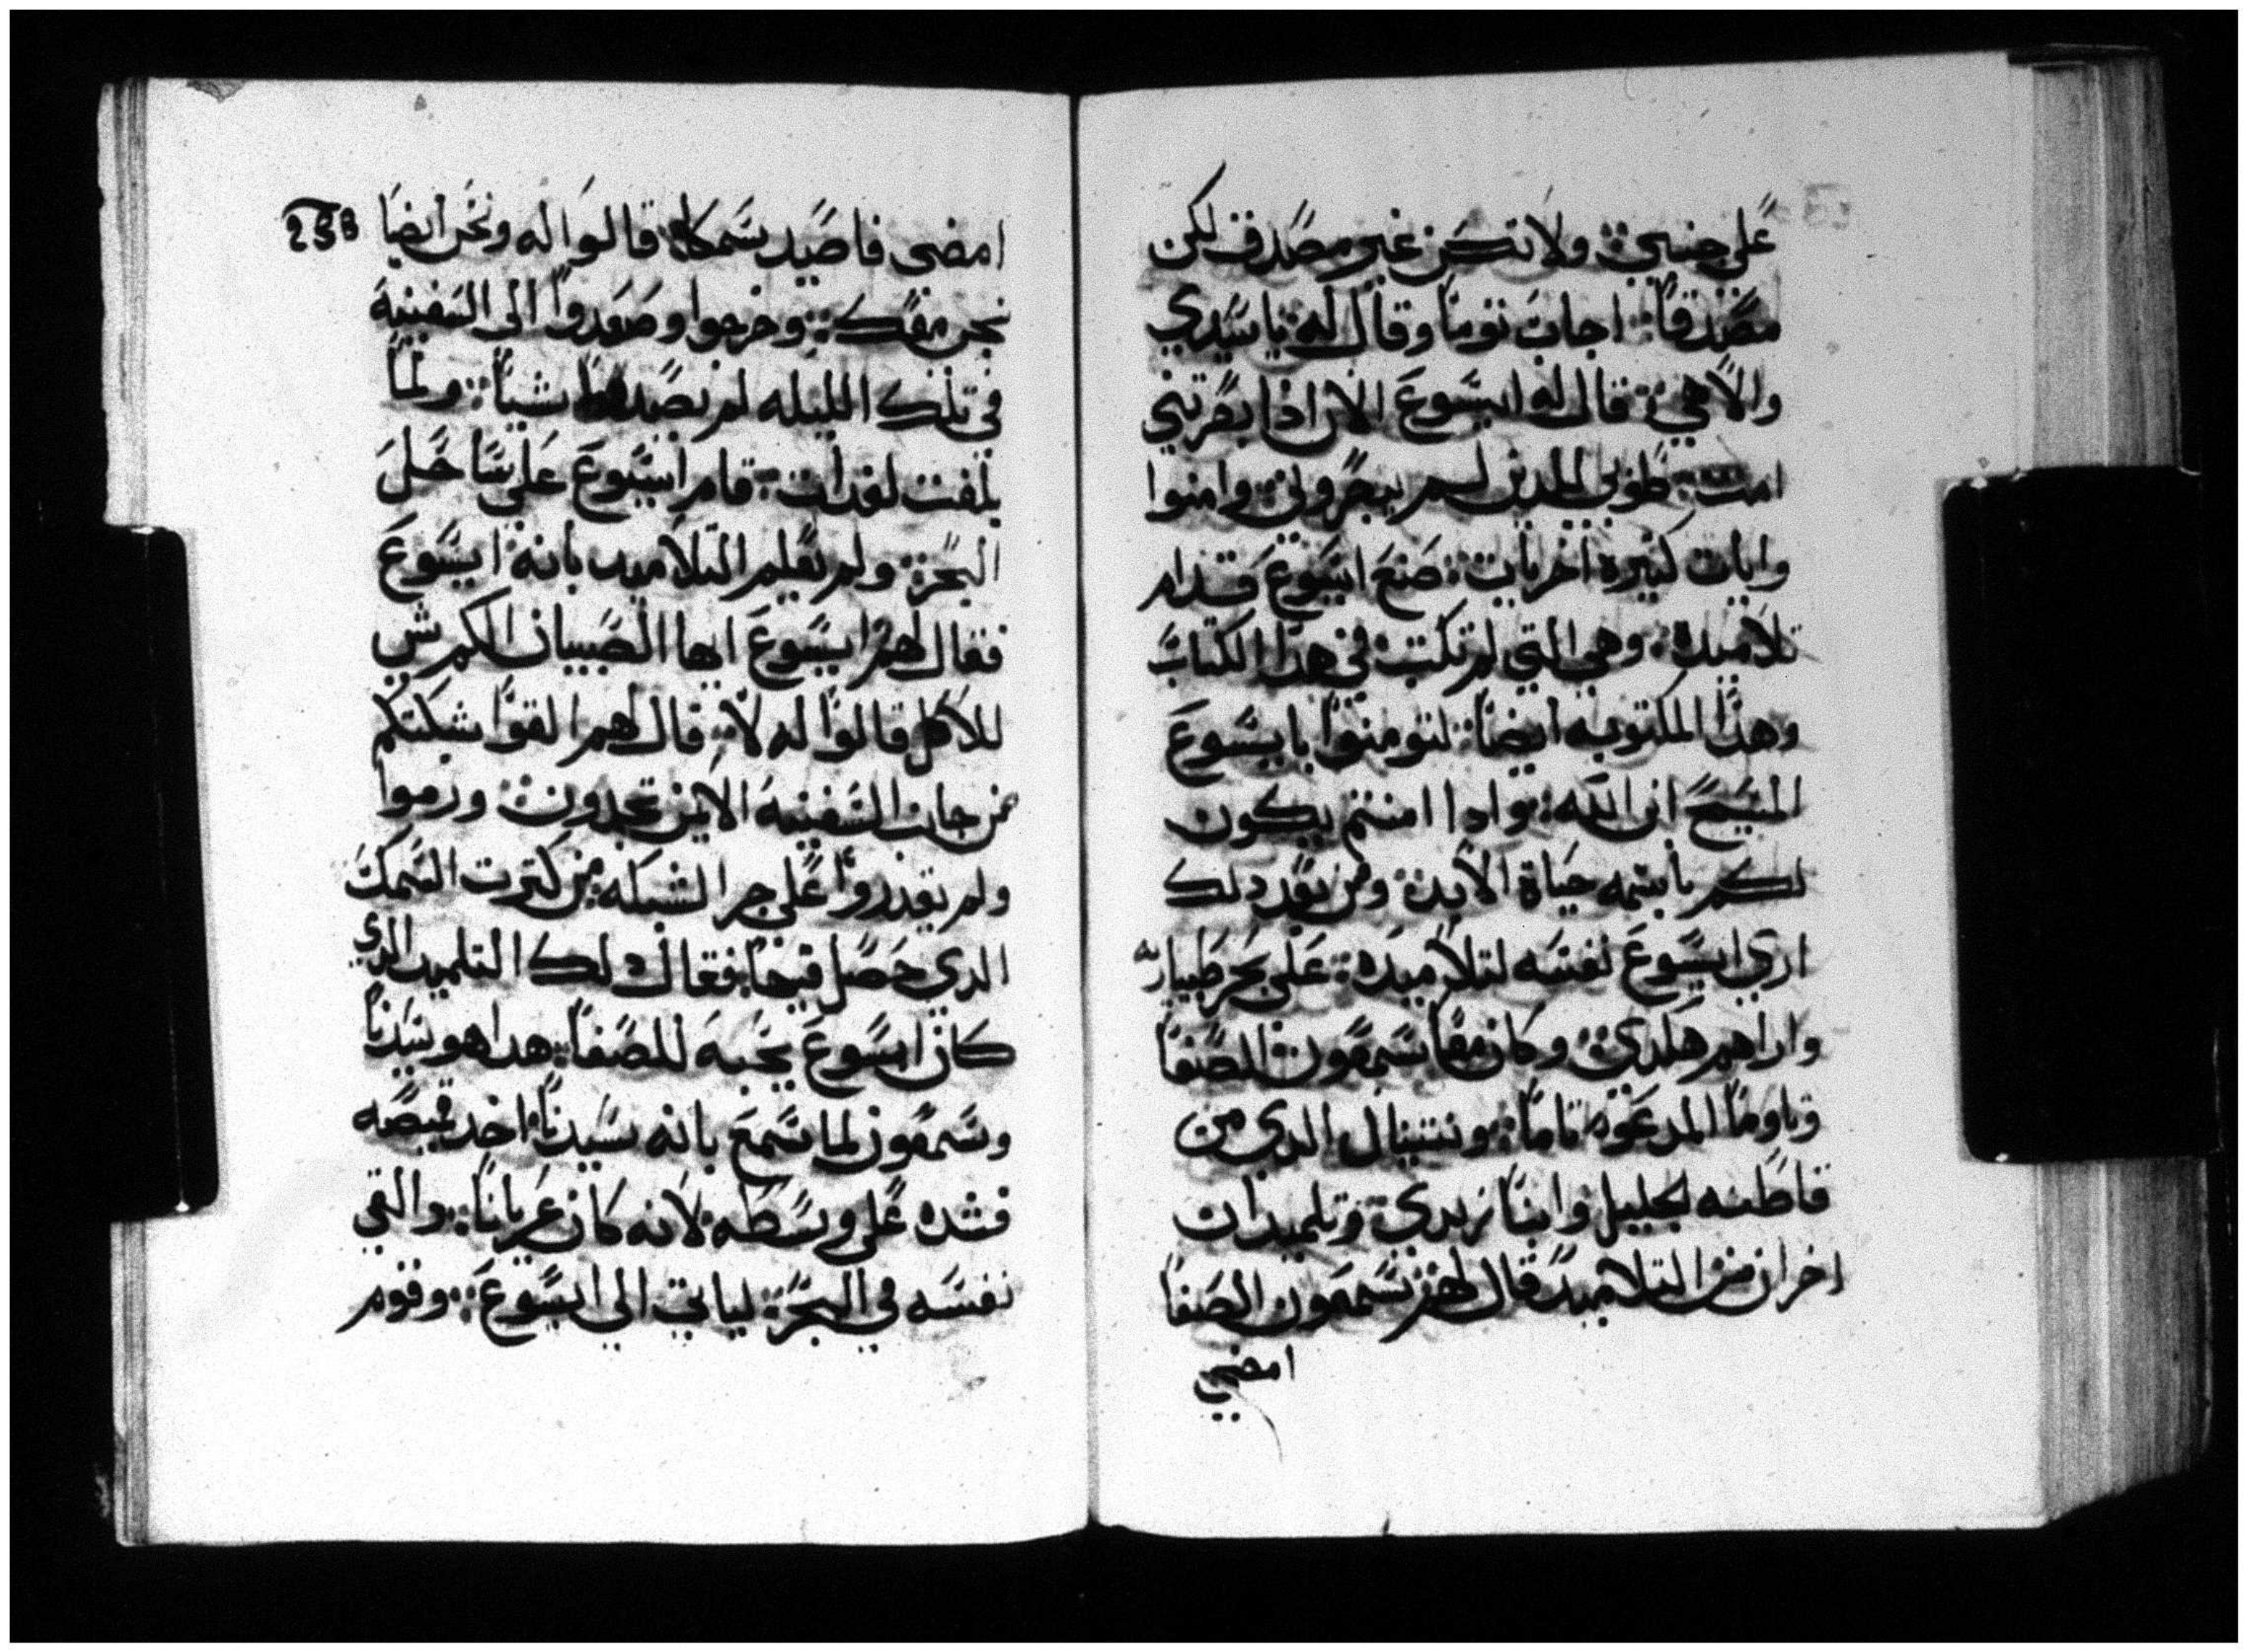 علي جنبي ولا تكن غير مصدق لكن
مصدقا اجاب توما وقال له يا سيدي
والاهي قال له ايسوع الان اذا بصرتني
امنت طوبي للدين لم يبصروني وامنوا
وايات كثيرة اخريات صنع ايسوع قدام
تلاميده وهي التي لم تكتب في هدا الكتاب
وهدا المكتوبه ايضا لتومنوا بايسوع
المسيح ابن الله وادا امنتم يكون
لكم باسمه حياة الابد ومن بعد دلك
اري ايسوع نفسه لتلاميده علي بحر طبياريه
واراهم هكدي وكان معا سمعون الصفا
وتاوما المدعوه تاما ونتنيال الدي من
قاطنه الجليل وابنا زبدي وتلميدان
اخران من التلاميد قال لهم سمعون الصفا
امضي
258
امضي فاصيد سمكا قالوا له ونحن ايضا
نجي معك وخرجوا وصعدوا الي السفينه
في تلك الليله لم يصيدوا شيا ولما
بلغت لغدات قام ايسوع علي ساحل
البحر ولم تعلم التلاميد بانه ايسوع
فقال لهم ايسوع ايها الصبيان الكم شي
للاكل قالوا له لا قال لهم القوا شبكتكم
من جانب السفينه الايمن تجدون ورموا
ولم يقدروا علي جر الشبكه من كترت السمك
الدي حصل فيها فقال دلك التلميد الدي
كان ايسوع يحبه للصفا هدا هو سيدنا
وسمعون لما سمع بانه سيدنا اخد قميصه
فشده علي وسطه لانه كان عريانا والقي
نفسه في البحر لياتي الي ايسوع وقوم